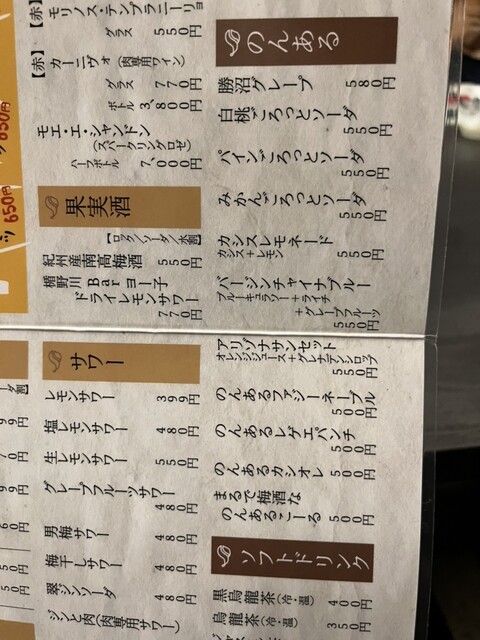 【赤】モリノス・テンプラニーリョ
グラス 550円
【赤】カーニヴォ(肉専用ワイン)
グラス 770円
ボトル 3,800円
モエ・エ・シャンドン
(スパークリングロゼ)
ハーフボトル 7,000円
果実酒
【ロック/ソーダ/水割】
紀州産南高梅酒 550円
楯野川Bar ヨー子
ドライレモンサワー
770円
サワー
レモンサワー 399円
塩レモンサワー 480円
生レモンサワー 550円
グレープフルーツサワー
480円
男梅サワー 480円
梅干しサワー 480円
翠ジンソーダ 480円
ジンビ肉(肉専用サワー)
のんある
勝沼グレープ 580円
白桃ごろっとソーダ
550円
パインごろっとソーダ
550円
みかんごろっとソーダ
550円
カシスレモネード
カシス+レモン 550円
バージンチャイナブルー
ブルーキュラソー+ライチ
+グレープフルーツ
550円
アリッナサンセット
オレンジジュース+グレナデンシロップ
550円
のんあるファジーネーブル
500円
のんあるレゲエパンチ
500円
のんあるカシオレ 500円
まるで梅酒な
のんあるこーる 500円
ソフトドリンク
黒烏龍茶(冷・温) 400円
烏龍茶(冷・温) 350円
650円
650円